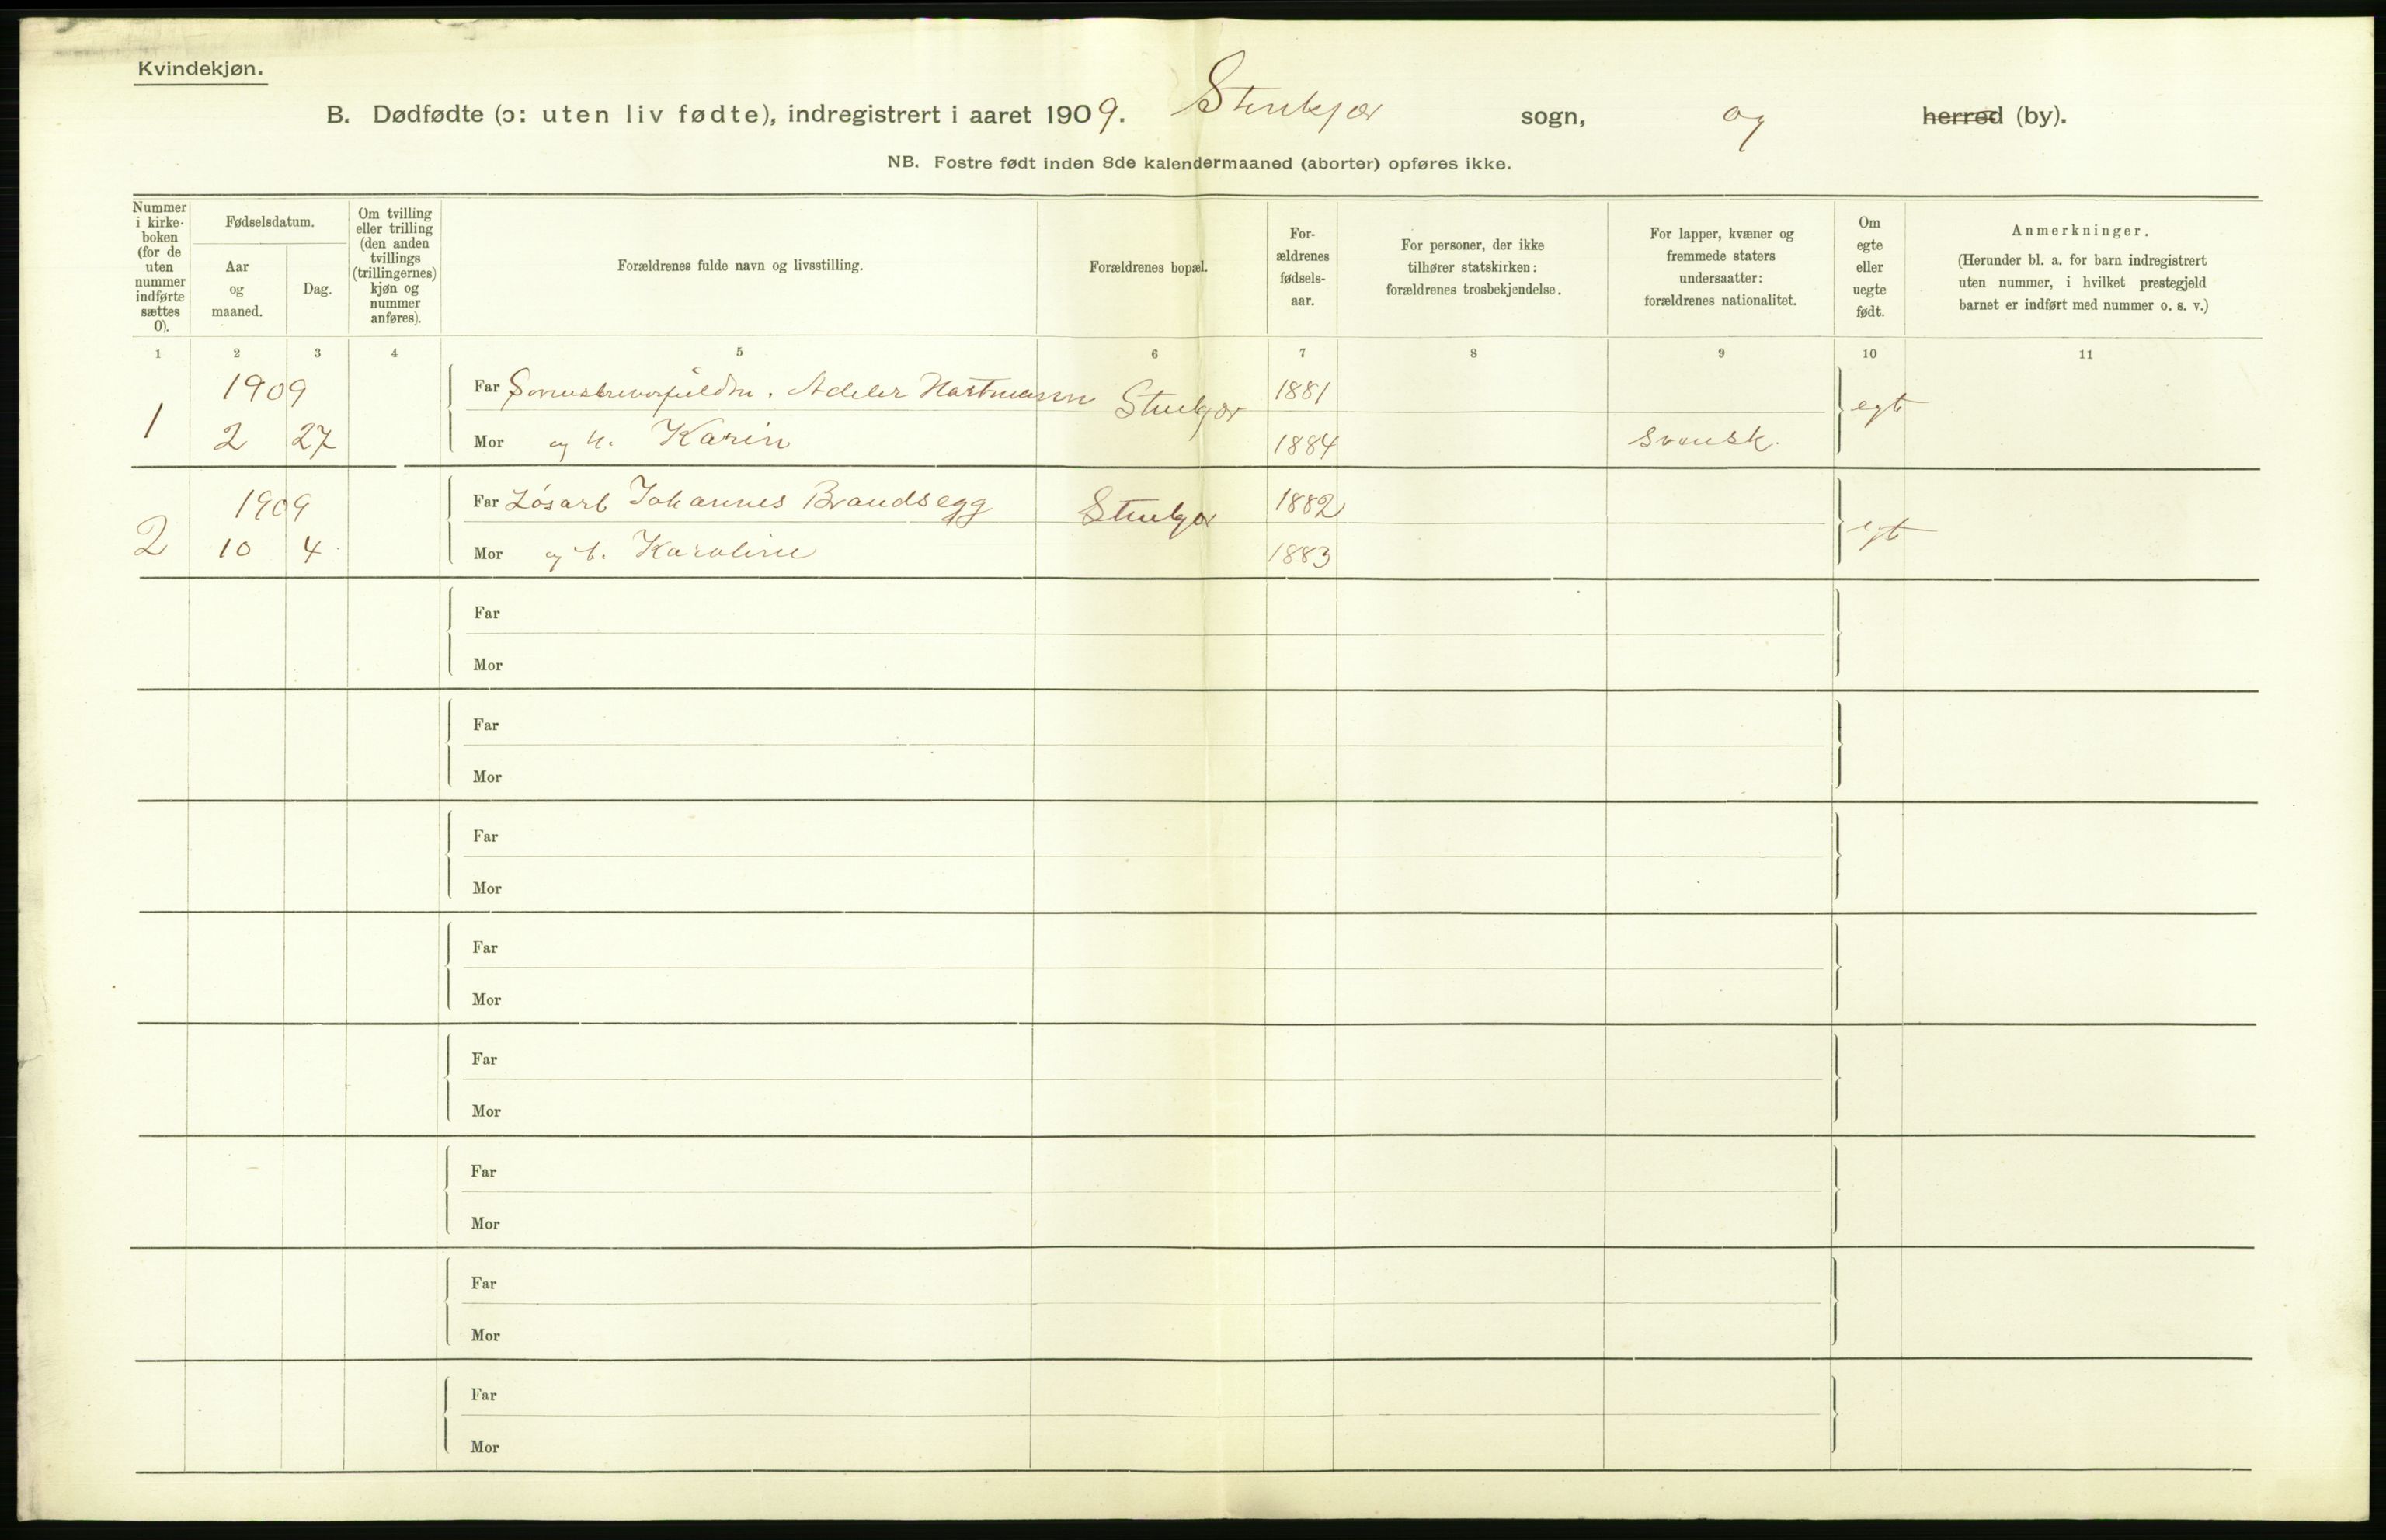 Kvindekjøn.
B. Dødfødte (ɔ: uten liv fødte), indregistrert i aaret 1909. Stenkjær sogn, og herred (by).
NB. Fostre født inden 8de kalendermaaned (aborter) opføres ikke.
Nummer
i kirke-
boken
(for de
uten
nummer
indførte
sættes
0).
Fødselsdatum.
Aar
og
maaned.
Dag.
Om tvilling
eller trilling
(den anden
tvillings
(trillingernes)
kjøn og
nummer
anføres).
Forældrenes fulde navn og livsstilling.
Forældrenes bopæl.
For-
ældrenes
fødsels-
aar.
For personer, der ikke
tilhører statskirken:
forældrenes trosbekjendelse.
For lapper, kvæner og
fremmede staters
undersaatter:
forældrenes nationalitet.
Om
egte
eller
uegte
født.
Anmerkninger.
(Herunder bl. a. for barn indregistrert
uten nummer, i hvilket prestegjeld
barnet er indført med nummer o. s. v.)
1 2 3 4 5 6 7 8 9 10 11
1 1909 Far Adeler Hartmann Stenkjær 1881 egte
2 27 Mor og h. Karin 1884 svensk.
2 1909 Far Løsarb Johannes Brandsegg Stenkjær 1882 egte
10 4 Mor og h. Karoline 1883
Far
Mor
Far
Mor
Far
Mor
Far
Mor
Far
Mor
Far
Mor
Far
Mor
Far
Mor